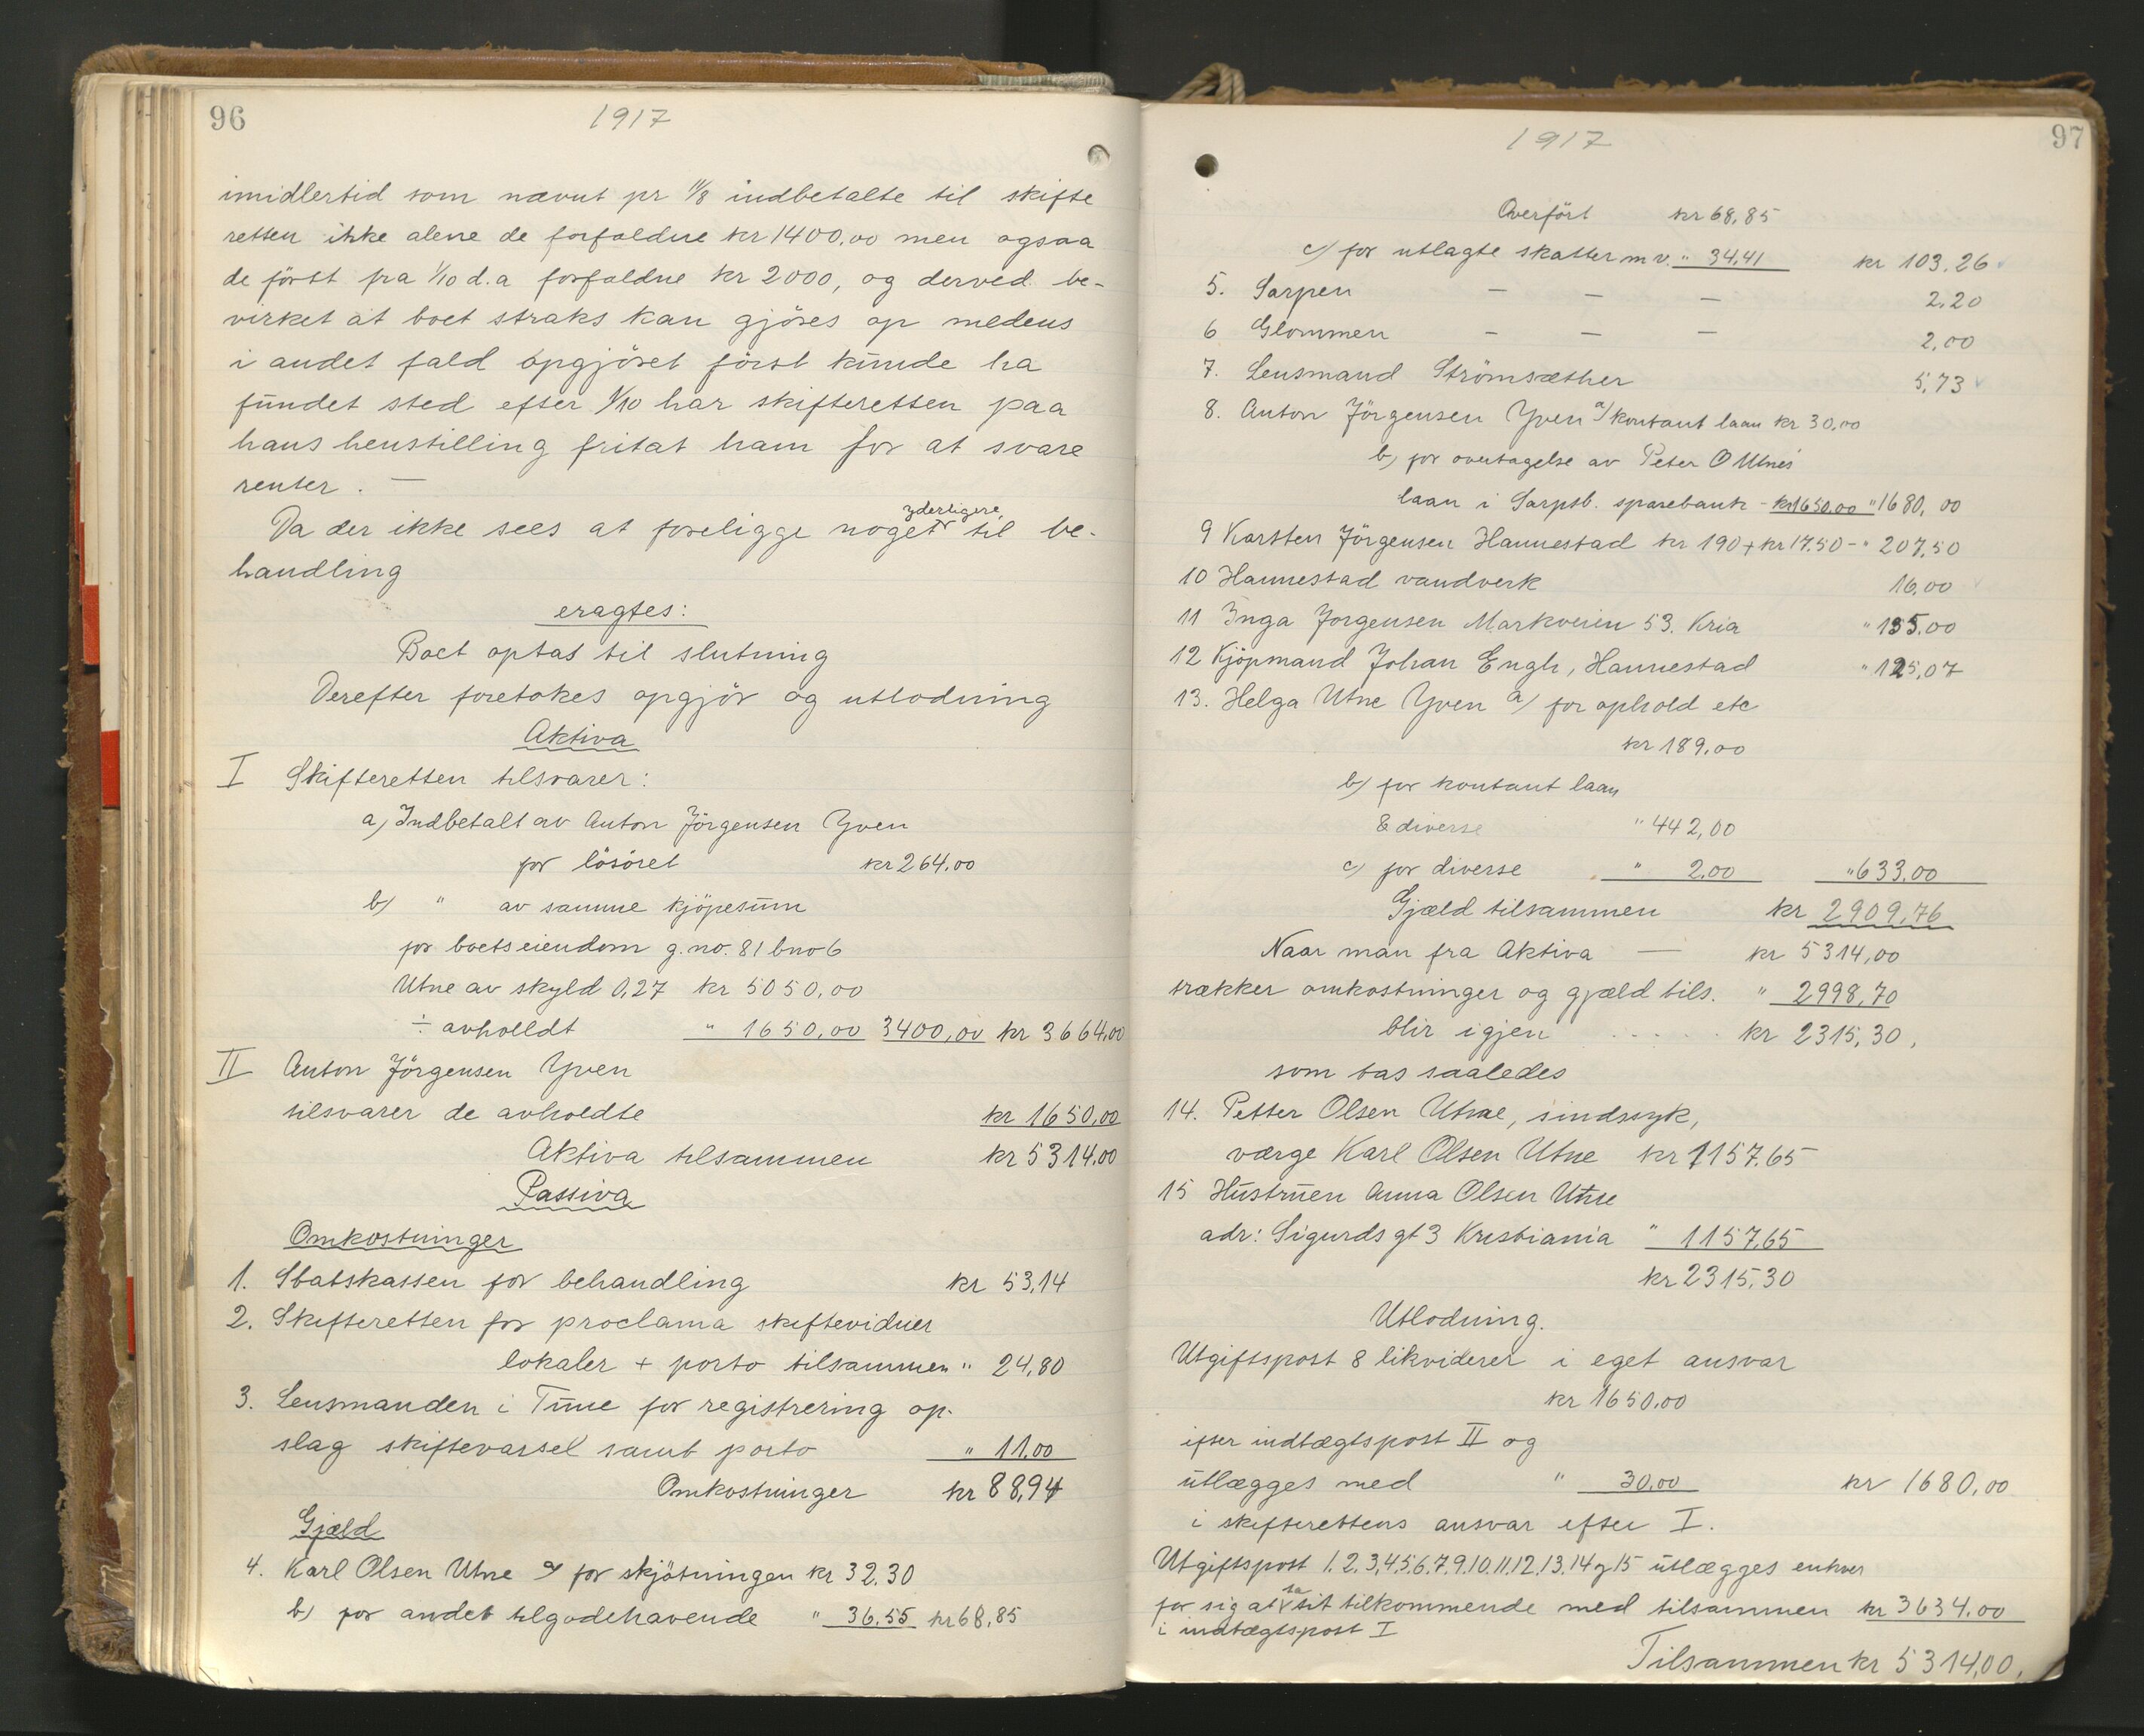 96
1917
imidlertid som nævnt pr 11/8 indbetalte til skifte
retten ikke alene de forfaldne kr 1400,00 men ogsaa
de först pra 1/10 d.a forfaldne kr 2000, og derved be-
virket at boet straks kan gjöres op medens
i andet fald opgjöret först kunde ha
fundet sted efter 1/10 har skifteretten paa
hans henstilling fritat ham for at svare
renter. —
Da der ikke sees at foreligge noget yderligere til be-
handling
eragtes:
Boet optas til slutning
Derefter foretakes opgjör og utlodning
Aktiva
I Skifteretten tilsvarer:
a, Indbetalt av Anton Jörgensen Yven
for lösöret kr 264.00
b) " av samme kjöpesum
for boets eiendom g.no. 81 bno 6
Utne av skyld 0,27 kr 5050,00
÷ avholdt " 1650,00 3400,00 kr 3664,00
II Anton Jörgensen Yven
tilsvarer de avholdte kr 1650,00
Aktiva tilsammen kr 5314.00
Passiva
Omkostninger
1. Statskassen for behandling kr 53,14
2. Skifteretten for proclama skiftevidner
lokaler + porto tilsammen " 24,80
3. Lensmanden i Tune for registrering op-
slag skiftevarsel samt porto " 11.00
Omkostninger kr 88,94
Gjæld
4. Karl Olsen Utne a) for skjötningen kr 32.30
b) for andet tilgodehavende " 36.55 kr 68,85
97
1917
Overfört kr 68,85
c) for utlagte skatter m v. " 34.41 kr 103.26
5. Sarpen — — — 2.20
6 Glommen — — — 2,00
7. Lensmand Strömsæther 5,73
8. Anton Jörgensen Yven a) kontant laan kr 30,00
b, for overtagelse av Peter O Utnes
laan i Sarpsb. sparebank - kr 1650.00 " 1680,00
9 Karsten Jörgensen Hannestad kr 190 + kr 17.50 - " 207,50
10 Hannestad vandverk 16,00
11 Inga Jorgensen Markveien 53. Kria " 135.00
12 Kjöpmand Johan Engh, Hannestad " 125,07
13. Helga Utne Yven a) for ophold etc
kr 189.00
b) for kontant laan
& diverse " 442,00
c) for diverse " 2.00 " 633,00
Gjæld tilsammen kr 2909,76
Naar man fra Aktiva — kr 5314,00
trækker omkostninger og gjæld tils. " 2998,70
blir igjen . . . . . kr 2315,30,
som tas saaledes
14. Petter Olsen Utne, sindssyk,
værge Karl Olsen Utne kr 1157.65
15 Hustruen Anna Olsen Utne
adr: Sigurds gt 3 Kristiania " 1157,65
kr 2315,30
Utlodning.
Utgiftspost 8 likviderer i eget ansvar
kr 1650.00
efter indtægtspost II og
utlægges med " 30,00 kr 1680,00
i skifterettens ansvar efter I.
Utgiftspost 1.2.3,4,5.6.7.9.10.11.12.13.14 og 15 utlægges enhver
for sig at ta sit tilkommende med tilsammen kr 3634.00
i indtægtspost I
Tilsammen kr 5314,00,